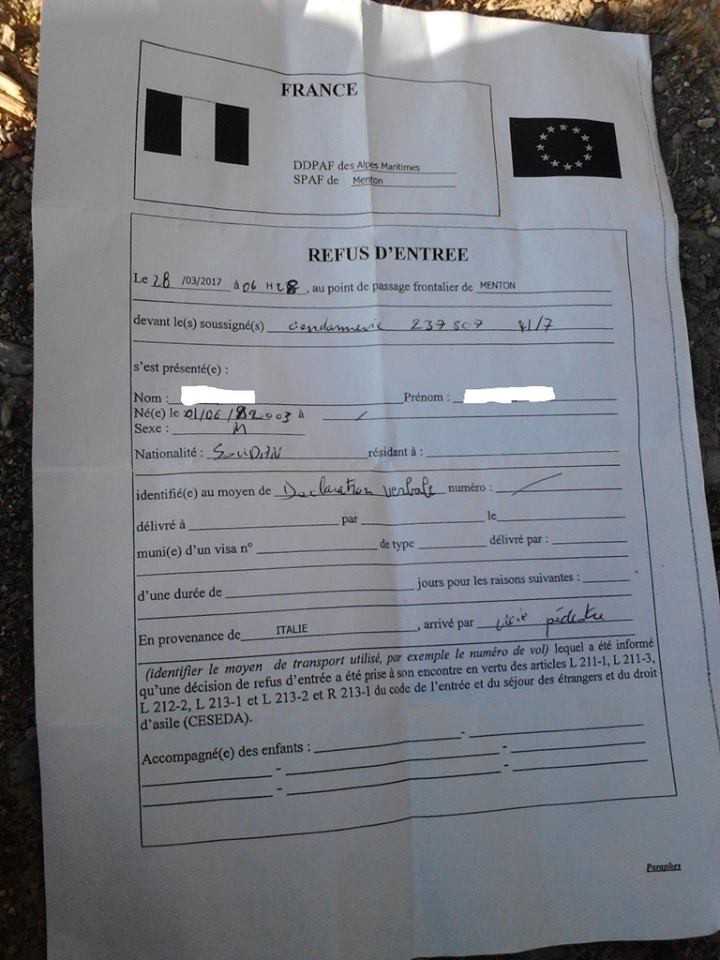 FRANCE
DDPAF des Alpes Maritimes
SPAF de Menton
REFUS D'ENTREE
Le 28 /03/2017 à 06 H 28, au point de passage frontalier de MENTON
devant le(s) soussigné(s) Gendarmerie 237 41/7
s'est présenté(e) :
Nom : Prénom :
Né(e) le 01/06/ 2003 à /
Sexe : M
Nationalité : SOUDAN résidant à :
identifié(e) au moyen de Declaration verbale numéro : /
délivré à par le
muni(e) d'un visa n° de type délivré par :
d'une durée de jours pour les raisons suivantes :
En provenance de ITALIE , arrivé par voie pédestre
(identifier le moyen de transport utilisé, par exemple le numéro de vol) lequel a été informé
qu'une décision de refus d'entrée a été prise à son encontre en vertu des articles L 211-1, L 211-3,
L 212-2, L 213-1 et L 213-2 et R 213-1 du code de l'entrée et du séjour des étrangers et du droit
d'asile (CESEDA).
Accompagné(e) des enfants : -
- -
- -
Paraphes